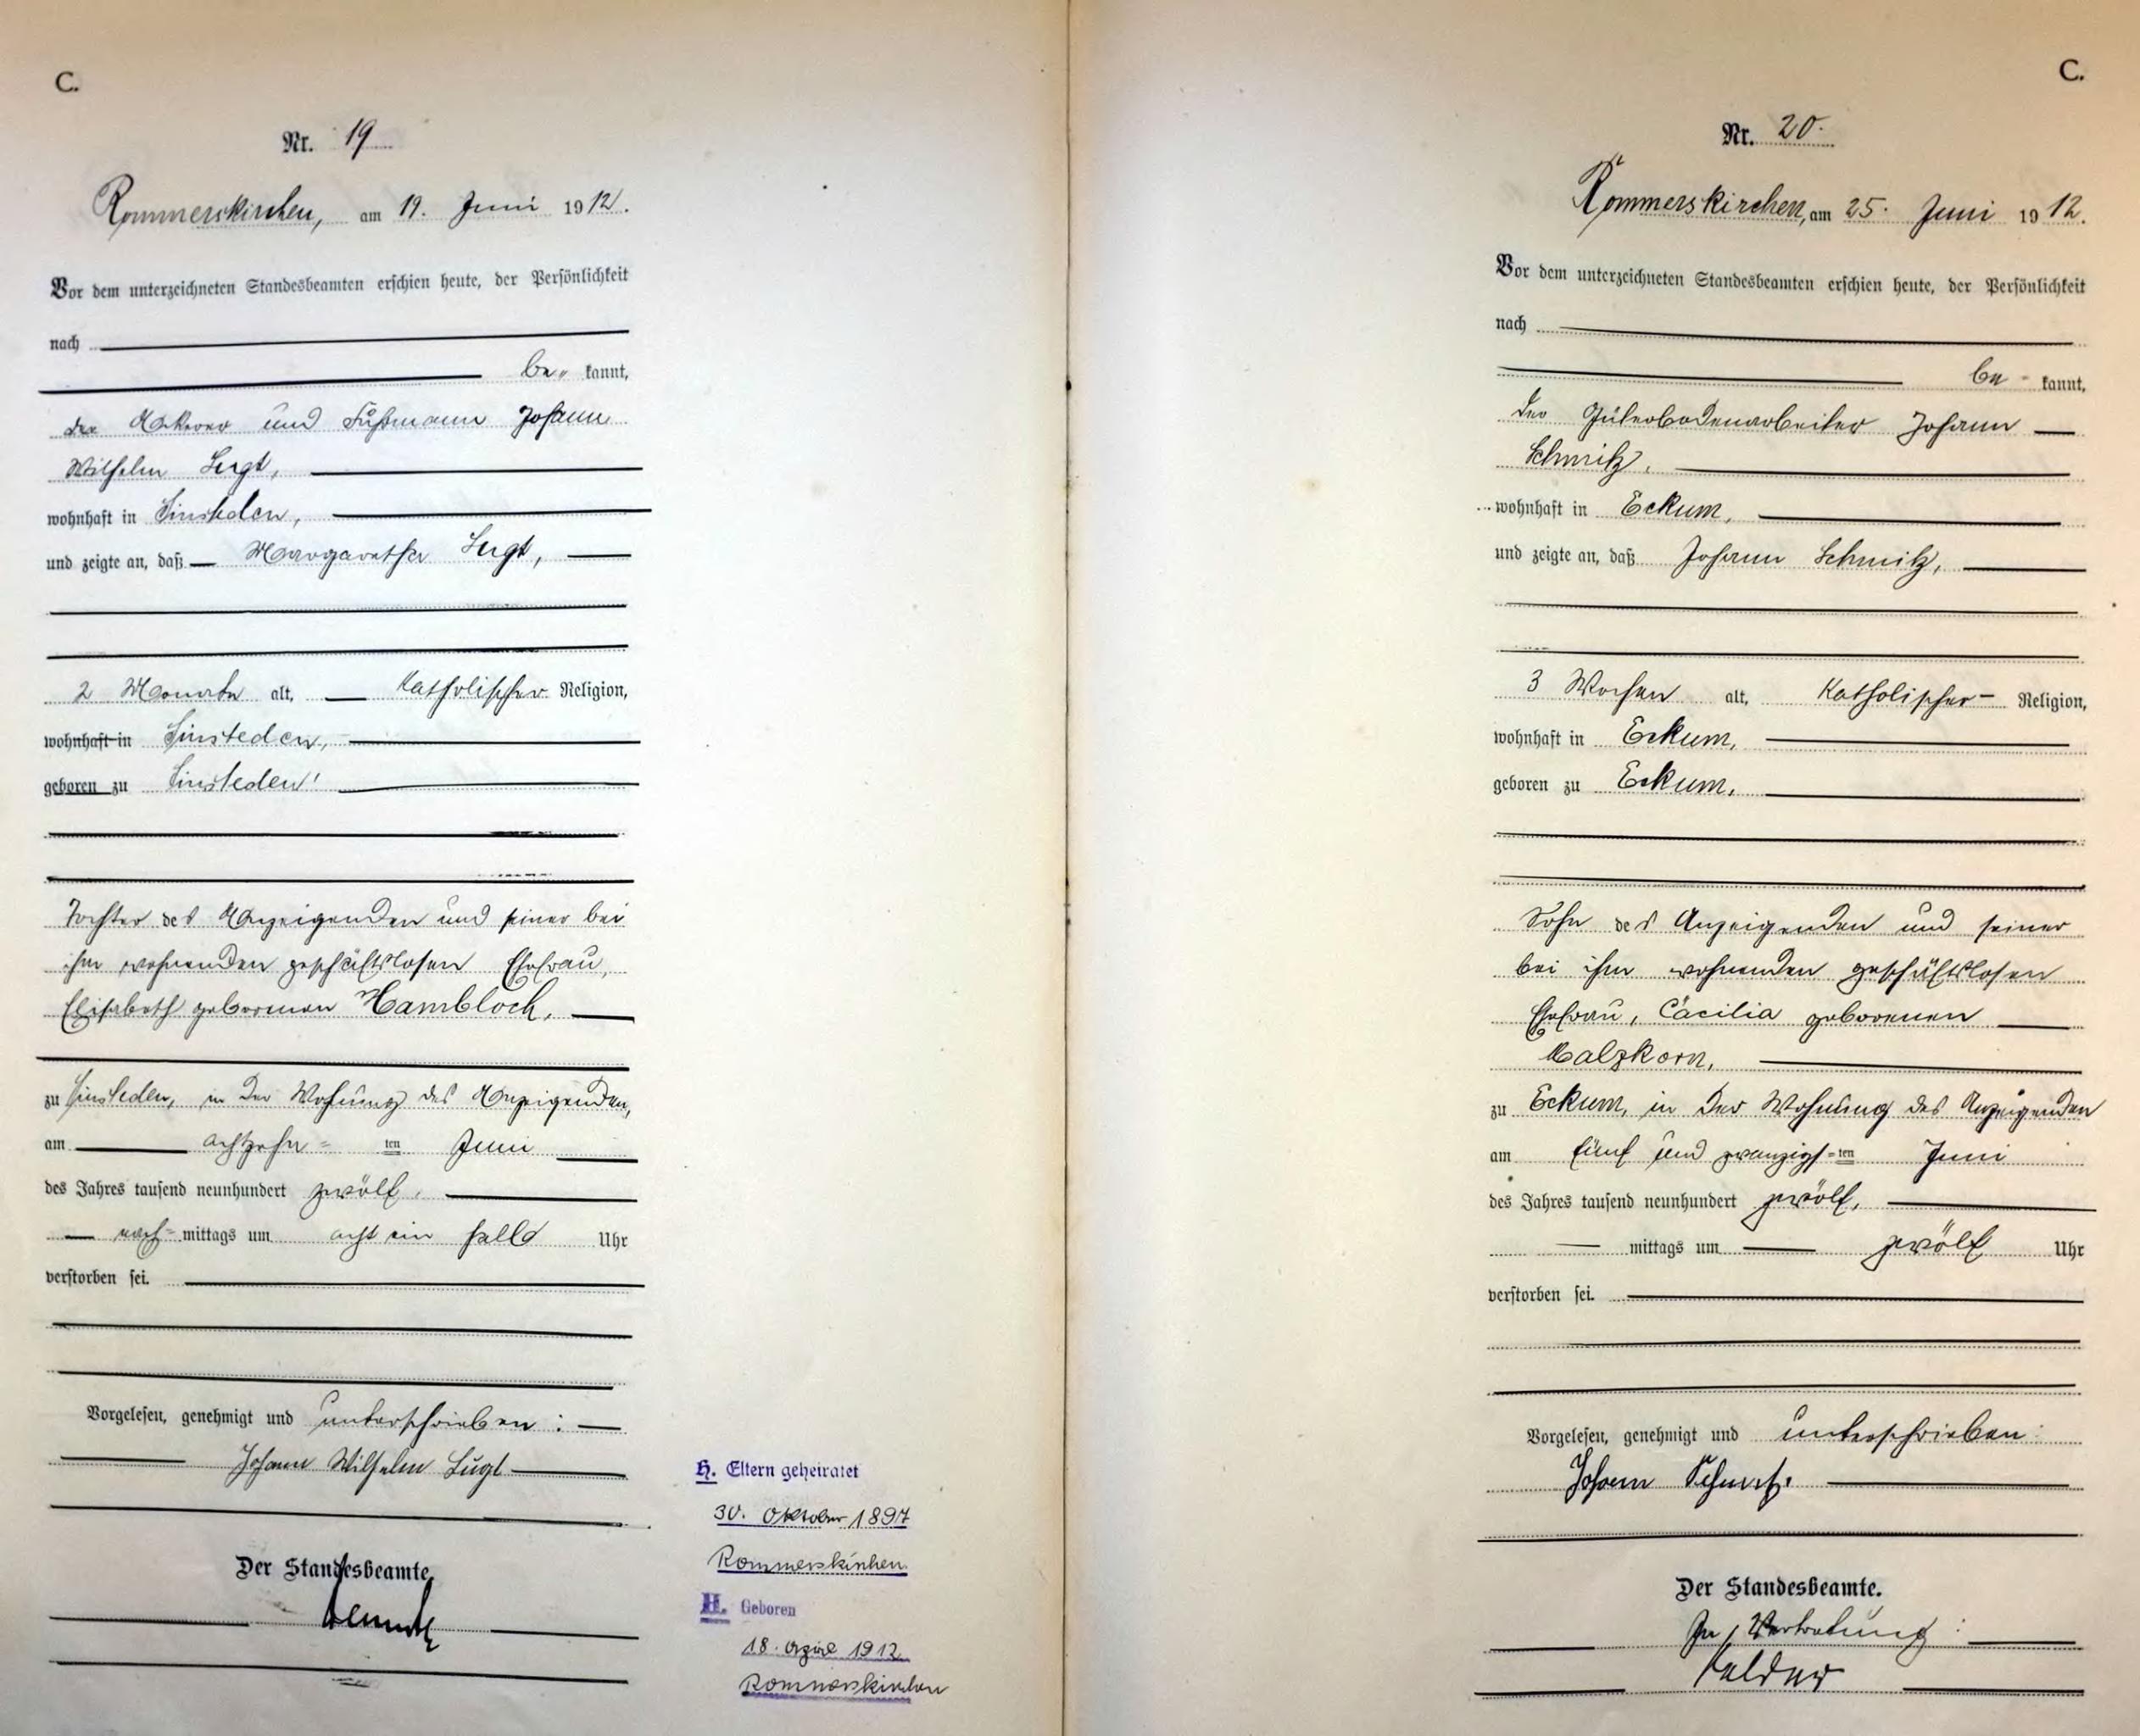 C.
Nr. 19
Rommerskirchen, am 19. Juni 1912.
Vor dem unterzeichneten Standesbeamten erschien heute, der Persönlichkeit
nach
be„ kannt,
der Ackerer und Fuhrmann Johann
Wilhelm
wohnhaft in Sinsteden,
und zeigte an, daß Margaretha
2 Monate alt, katholischer Religion,
wohnhaft in Sinsteden,
geboren zu Sinsteden
Tochter des Anzeigenden und seiner bei
ihm wohnenden geschäftslosen Ehefrau,
Elisabeth geborenen Hambloch,
zu Sinsteden, in der Wohnung des Anzeigenden,
am achtzehn= ten Juni
des Jahres tausend neunhundert zwölf,
nach= mittags um acht ein halb Uhr
verstorben sei.
Vorgelesen, genehmigt und unterschrieben:
Johann Wilhelm
Der Standesbeamte.
H. Eltern geheiratet
30. Oktober 1897
Rommerskirchen
H. Geboren
18. April 1912
Rommerskirchen
C.
Nr. 20.
Rommerskirchen, am 25. Juni 1912.
Vor dem unterzeichneten Standesbeamten erschien heute, der Persönlichkeit
nach
be- kannt,
der Güterbodenarbeiter Johann
Schmitz,
wohnhaft in Eckum,
und zeigte an, daß Johann Schmitz,
3 Wochen alt, katholischer- Religion,
wohnhaft in Eckum,
geboren zu Eckum,
Sohn des Anzeigenden und seiner
bei ihm wohnenden geschäftslosen
Ehefrau, Cäcilia geborenen
Malzkorn,
zu Eckum, in der Wohnung des Anzeigenden
am fünf und zwanzigs=ten Juni
des Jahres tausend neunhundert zwölf,
mittags um zwölf Uhr
verstorben sei.
Vorgelesen, genehmigt und unterschrieben:
Johann Schmitz.
Der Standesbeamte.
In Vertretung: